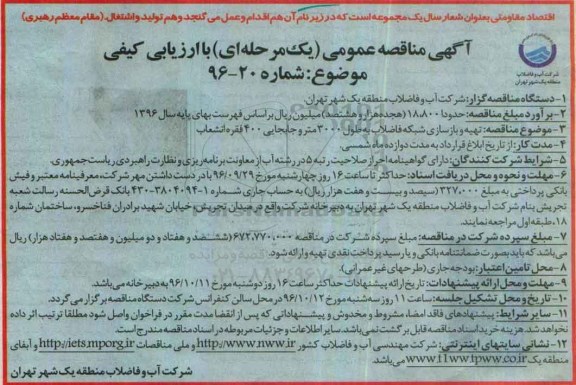 اقتصاد مقاومتی بعنوان شعار سال یک مجموعه است که در زیر نام آن هم اقدام و عمل می گنجد و هم تولید و اشتغال. (مقام معظم رهبری)
آگهی مناقصه عمومی (یک مرحله‌ای) با ارزیابی کیفی
موضوع: شماره ۲۰-۹۶
شرکت آب و فاضلاب
منطقه یک شهر تهران
۱- دستگاه مناقصه گزار: شرکت آب و فاضلاب منطقه یک شهر تهران
۲- برآورد مبلغ مناقصه: حدوداً ۱۸،۸۰۰ (هجده هزار و هشتصد) میلیون ریال بر اساس فهرست بهای پایه سال ۱۳۹۶
۳- موضوع مناقصه: تهیه و بازسازی شبکه فاضلاب به طول ۳۰۰۰ متر و جابجایی ۴۰۰ فقره انشعاب
۴- مدت کار: از تاریخ ابلاغ قرارداد به مدت دوازده ماه شمسی.
۵- شرایط شرکت کنندگان: دارای گواهینامه احراز صلاحیت رتبه ۵ در رشته آب از معاونت برنامه ریزی و نظارت راهبردی ریاست جمهوری.
۶- مهلت و نحوه و محل دریافت اسناد: حداکثر تا ساعت ۱۶ روز چهارشنبه مورخ ۹۶/۰۹/۲۹ با در دست داشتن مهر شرکت، معرفینامه معتبر و فیش
بانکی پرداختی به مبلغ ۳۲۷،۰۰۰ (سیصد و بیست و هفت هزار ریال) به حساب جاری شماره ۱-۳۸۰۴۰۹۴-۴۳۰ بانک قرض الحسنه رسالت شعبه
تجریش بنام شرکت آب و فاضلاب منطقه یک شهر تهران به دبیرخانه شرکت واقع در میدان تجریش، خیابان شهید برادران فناخسرو، ساختمان شماره
۱۸، طبقه اول مراجعه نمایند.
۷- مبلغ سپرده شرکت در مناقصه: مبلغ سپرده شرکت در مناقصه ۶۷۲،۷۷۰،۰۰۰ (ششصد و هفتاد و دو میلیون و هفتصد و هفتاد هزار) ریال
می باشد که باید بصورت ضمانتنامه بانکی و یا رسید پرداخت نقدی تهیه و ارائه شود.
۸- محل تامین اعتبار: بودجه جاری (طرحهای غیر عمرانی).
۹- مهلت و محل ارائه پیشنهادات: تاریخ ارائه پیشنهادات حداکثر ساعت ۱۶ روز دوشنبه مورخ ۹۶/۱۰/۱۱ به دبیرخانه می باشد.
۱۰- تاریخ و محل تشکیل جلسه: ساعت ۱۱ روز سه شنبه مورخ ۹۶/۱۰/۱۲ در محل سالن کنفرانس شرکت دستگاه مناقصه برگزار می گردد.
۱۱- سایر شرایط: پیشنهادهای فاقد امضاء، مشروط و مخدوش و پیشنهاداتی که پس از انقضا مدت مقرر در فراخوان واصل شود مطلقا ترتیب اثر داده
نخواهد شد. هزینه خرید اسناد مناقصه قابل برگشت نمی باشد. سایر اطلاعات و جزئیات مربوطه در اسناد مناقصه مندرج است.
۱۲- نشانی سایتهای اینترنتی: شرکت مهندسی آب و فاضلاب کشور http://www.nww.ir و ملی مناقصات http://iets.mporg.ir و آبفای
منطقه یک www.t1ww.tpww.co.ir می باشد.
شرکت آب و فاضلاب منطقه یک شهر تهران